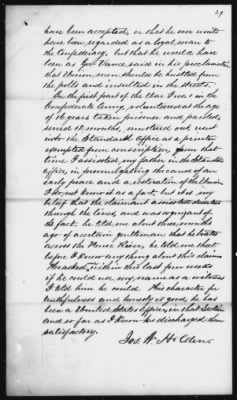 29
have been accepted, or that he nor would
have been regarded as a loyal man to
the Confederacy, but that he would have
been as Gov. Vance said in his proclamation
that Union men should be hustled from
the polls and insulted in the streets.
In the first part of the War I was in the
Confederate Army, volunteered at the age
of 16 years taken prisoner and paroled
served 12 months, mustered out went
into the Standard Office as a printer
exempted from conscription, from that
time I assisted my father in the Standard
Office, in promulgating the cause of an
early peace and a restoration of the Union
I do not know as a fact, but it is my
belief that the claimant assisted
through the lines, and was
the fact. he told me about three months
ago of a certain gentleman that he
across the River, he told me that
before I knew any thing about this claim
He asked within this last few weeks
if he could use my name as a witness
I told him he could. His character for
truthfulness and honesty is good, he has
been a United States Officer in that Section
and so far as I know has discharged them
satisfactory.
Jos. W. Holden